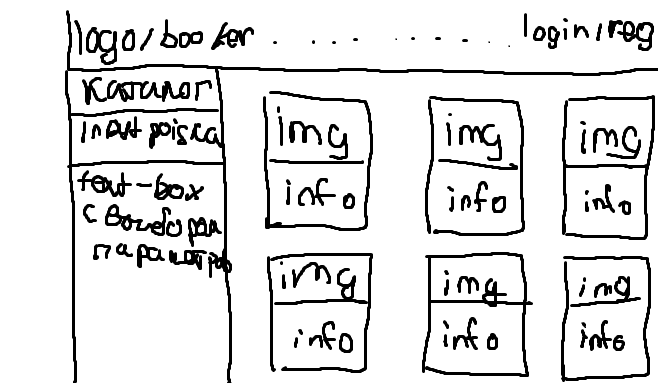 logo/booker . . . . . . . . . . login/reg
Каталог
input poiska
text-box
с выбором
параметров
img
info
img
info
img
info
img
info
img
info
img
info